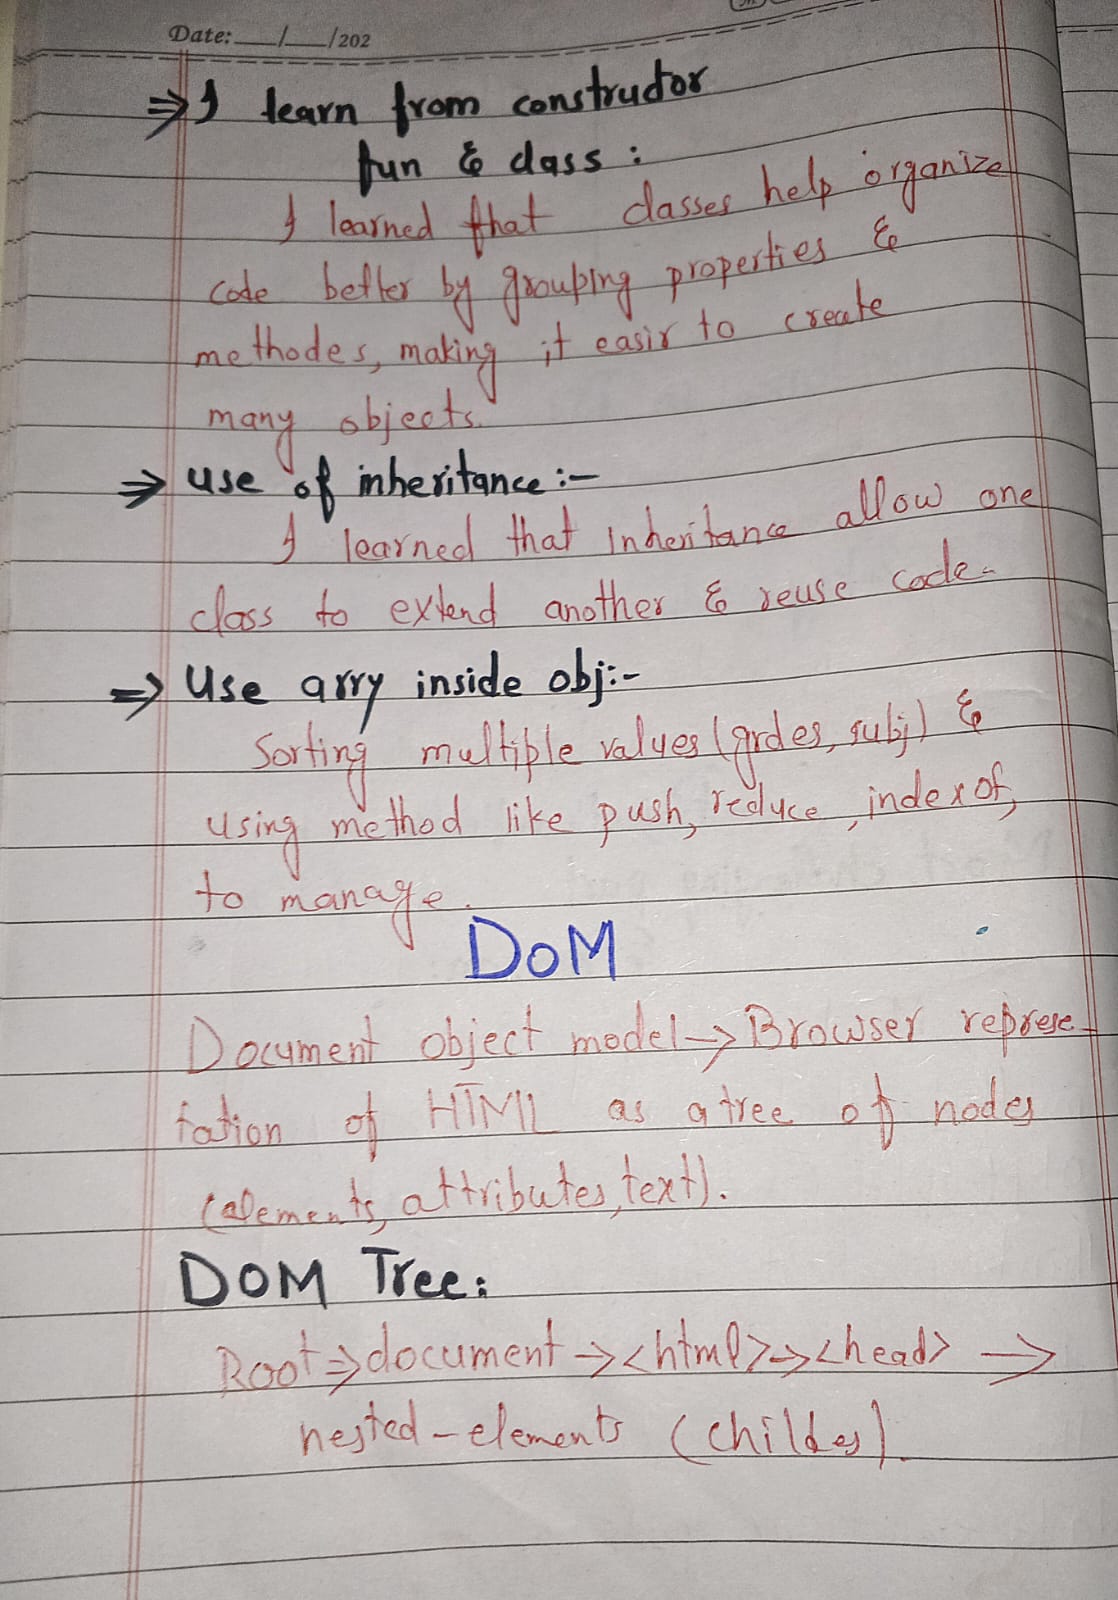 Date: __/__/202
⇒ I learn from constructor
fun & class :
I learned that classes help organize
code better by grouping properties &
methodes, making it easir to create
many objects.
⇒ use of inheritance :-
I learned that inheritance allow one
class to extend another & reuse code.
⇒ Use arry inside obj:-
Sorting multiple values (grdes, subj) &
using method like push, reduce, indexof,
to manage.
DOM
Document object model → Browser represe-
tation of HTML as a tree of nodes
(elements, attributes, text).
DOM Tree:
Root ⇒ document → <html> → <head> →
nested-elements (childes).